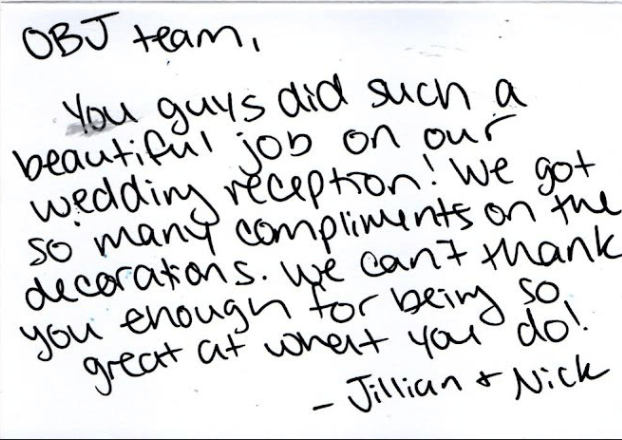 OBJ team,
You guys did such a
beautiful job on our
wedding reception! We got
so many compliments on the
decorations. We can't thank
you enough for being so
great at what you do!
- Jillian + Nick